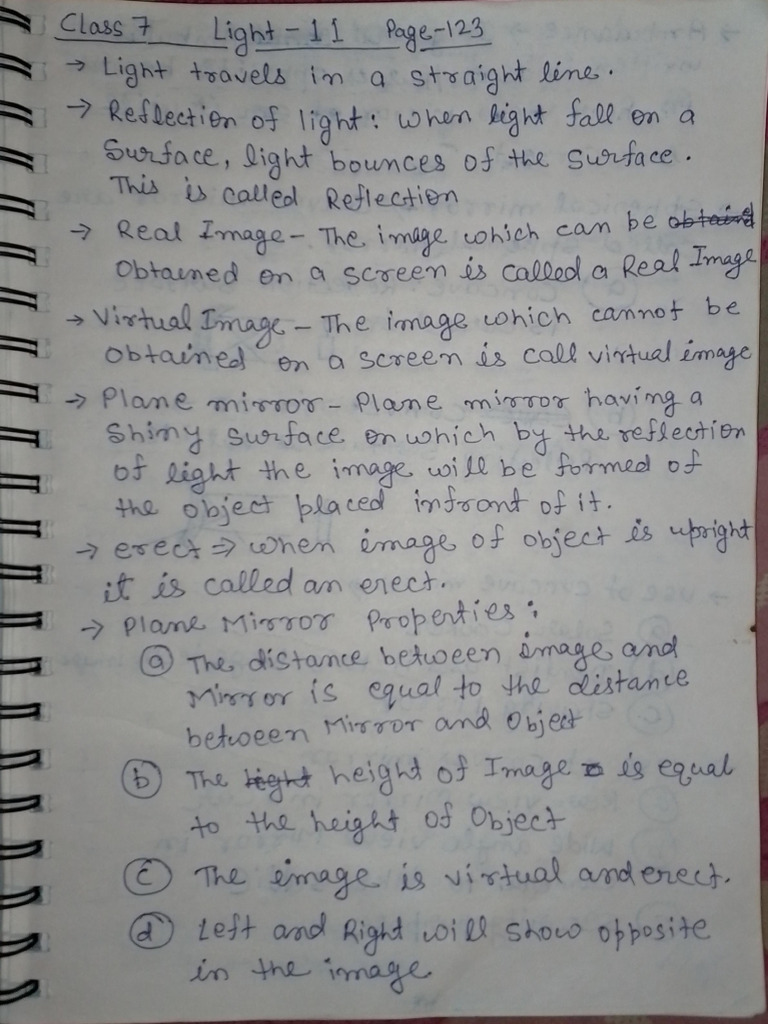 Class 7 Light - 11 Page-123
→ Light travels in a straight line.
→ Reflection of light: when light fall on a
Surface, light bounces of the surface.
This is called Reflection
→ Real Image - The image which can be obtaind
Obtained on a screen is called a Real Image
→ Virtual Image - The image which cannot be
obtained on a screen is call virtual image
→ Plane mirror - Plane mirror having a
Shiny surface on which by the reflection
of light the image will be formed of
the object placed infront of it.
→ erect ⇒ when image of object is upright
it is called an erect.
→ Plane Mirror Properties:
(a) The distance between image and
Mirror is equal to the distance
between Mirror and Object
(b) The hight height of Image is equal
to the height of Object
(c) The image is virtual and erect.
(d) Left and Right will show opposite
in the image.